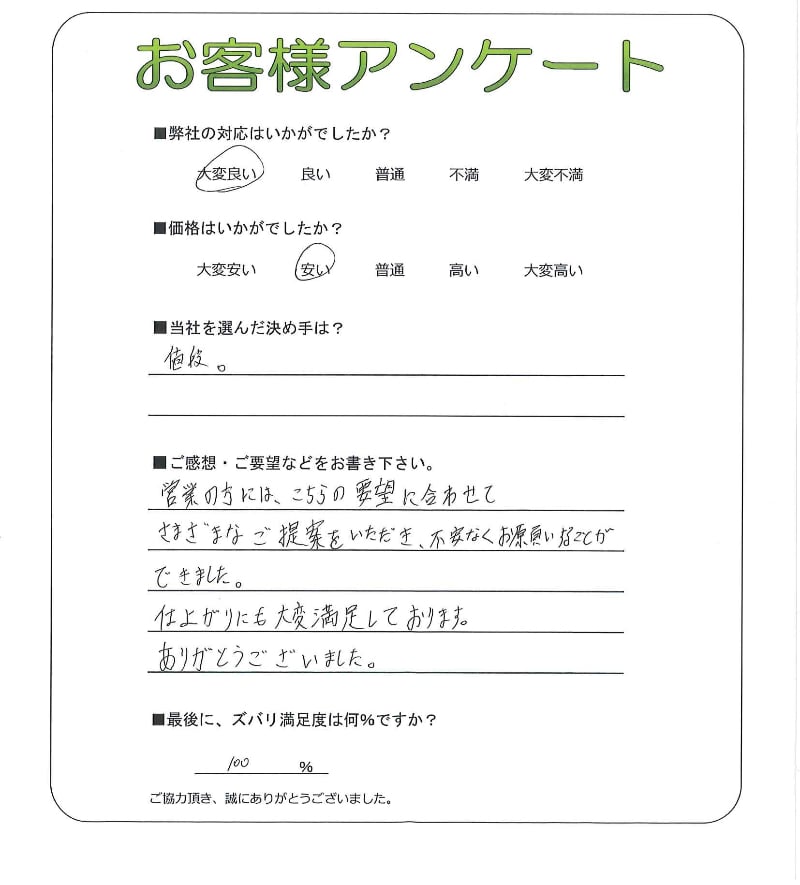 お客様アンケート
■弊社の対応はいかがでしたか？
大変良い 良い 普通 不満 大変不満
■価格はいかがでしたか？
大変安い 安い 普通 高い 大変高い
■当社を選んだ決め手は？
値段。
■ご感想・ご要望などをお書き下さい。
営業の方には、こちらの要望に合わせて
さまざまなご提案をいただき、不安なくお願いすることが
できました。
仕上がりにも大変満足しております。
ありがとうございました。
■最後に、ズバリ満足度は何%ですか？
100 %
ご協力頂き、誠にありがとうございました。